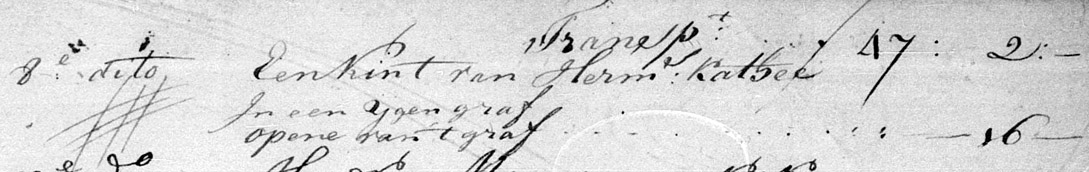 Transpt 47: 2:-
8en dito Een kint van Herms: Katbee
In een Ygen graf
opene van 't graf . . . . . . . . - 16 -